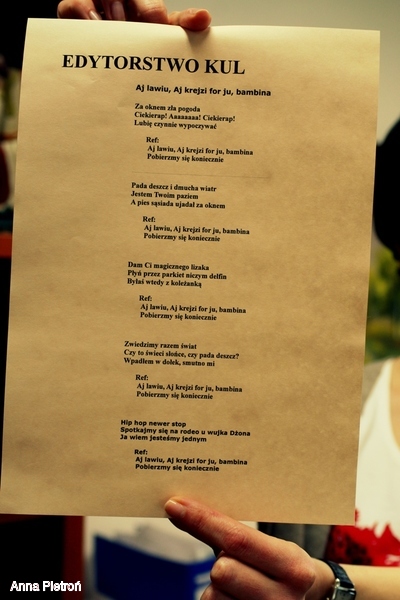 EDYTORSTWO KUL
Aj lawiu, Aj krejzi for ju, bambina
Za oknem zła pogoda
Ciekierap! Aaaaaaaa! Ciekierap!
Lubię czynnie wypoczywać
Ref:
Aj lawiu, Aj krejzi for ju, bambina
Pobierzmy się koniecznie
Pada deszcz i dmucha wiatr
Jestem Twoim paziem
A pies sąsiada ujadał za oknem
Ref:
Aj lawiu, Aj krejzi for ju, bambina
Pobierzmy się koniecznie
Dam Ci magicznego lizaka
Płyń przez parkiet niczym delfin
Byłaś wtedy z koleżanką
Ref:
Aj lawiu, Aj krejzi for ju, bambina
Pobierzmy się koniecznie
Zwiedzimy razem świat
Czy to świeci słońce, czy pada deszcz?
Wpadłem w dołek, smutno mi
Ref:
Aj lawiu, Aj krejzi for ju, bambina
Pobierzmy się koniecznie
Hip hop newer stop
Spotkajmy się na rodeo u wujka Dżona
Ja wiem jesteśmy jednym
Ref:
Aj lawiu, Aj krejzi for ju, bambina
Pobierzmy się koniecznie
Anna Pietroń